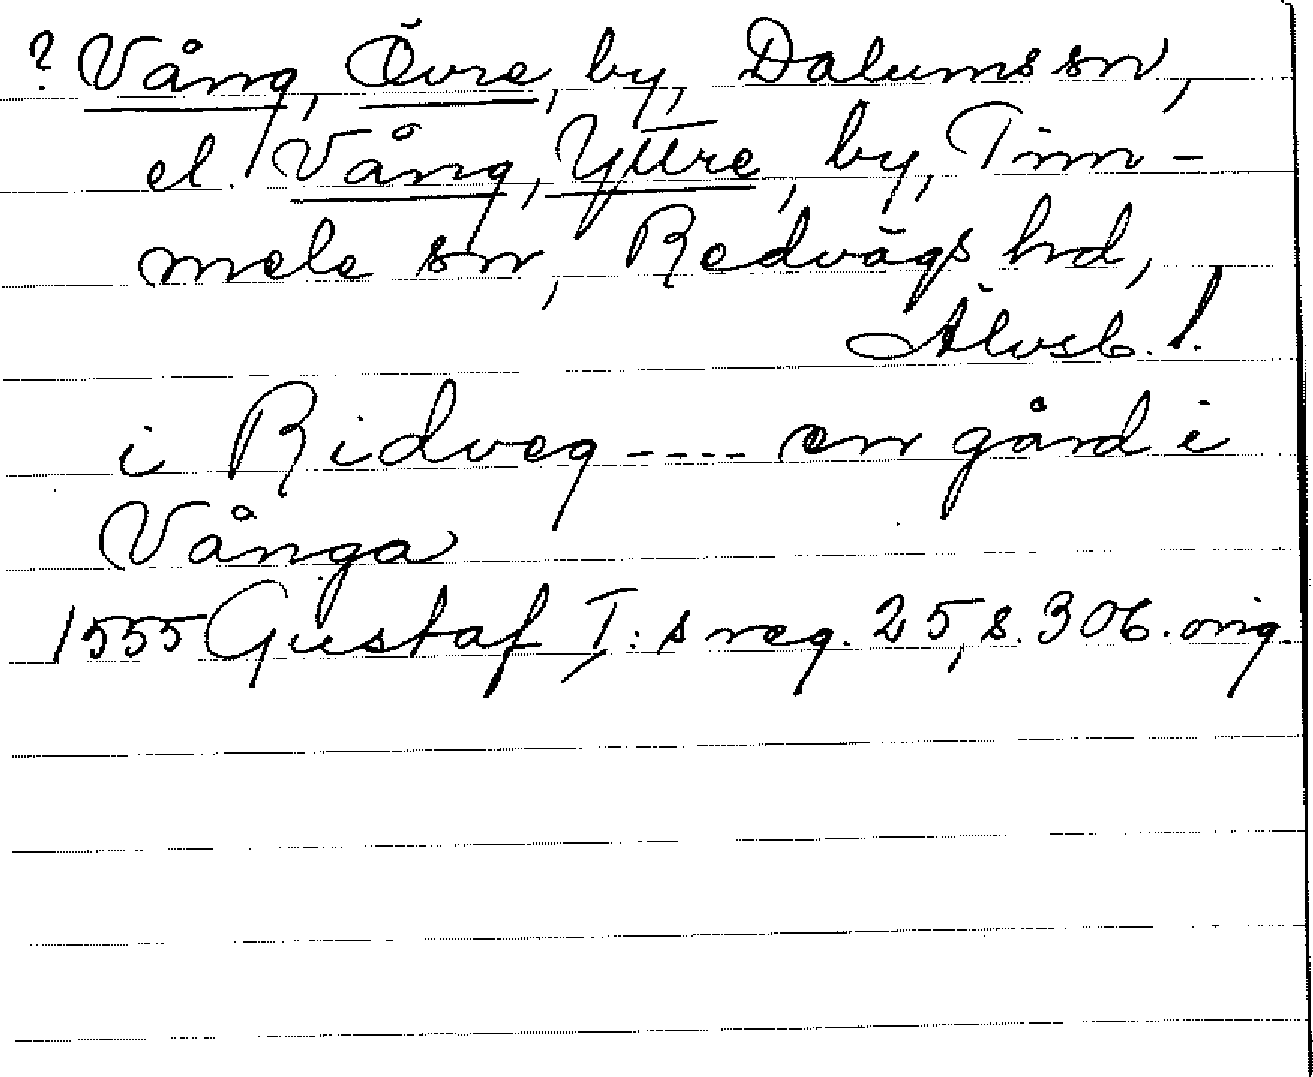 ? Vång, Övre, by, Dalums sn,
el. Vång, Yttre, by, Tim-
mele sn, Redvägs hd,
Älvsb. l.
i Ridveg ---- en gård i
Vånga
1555 Gustaf I:s reg. 25, s. 306. orig.